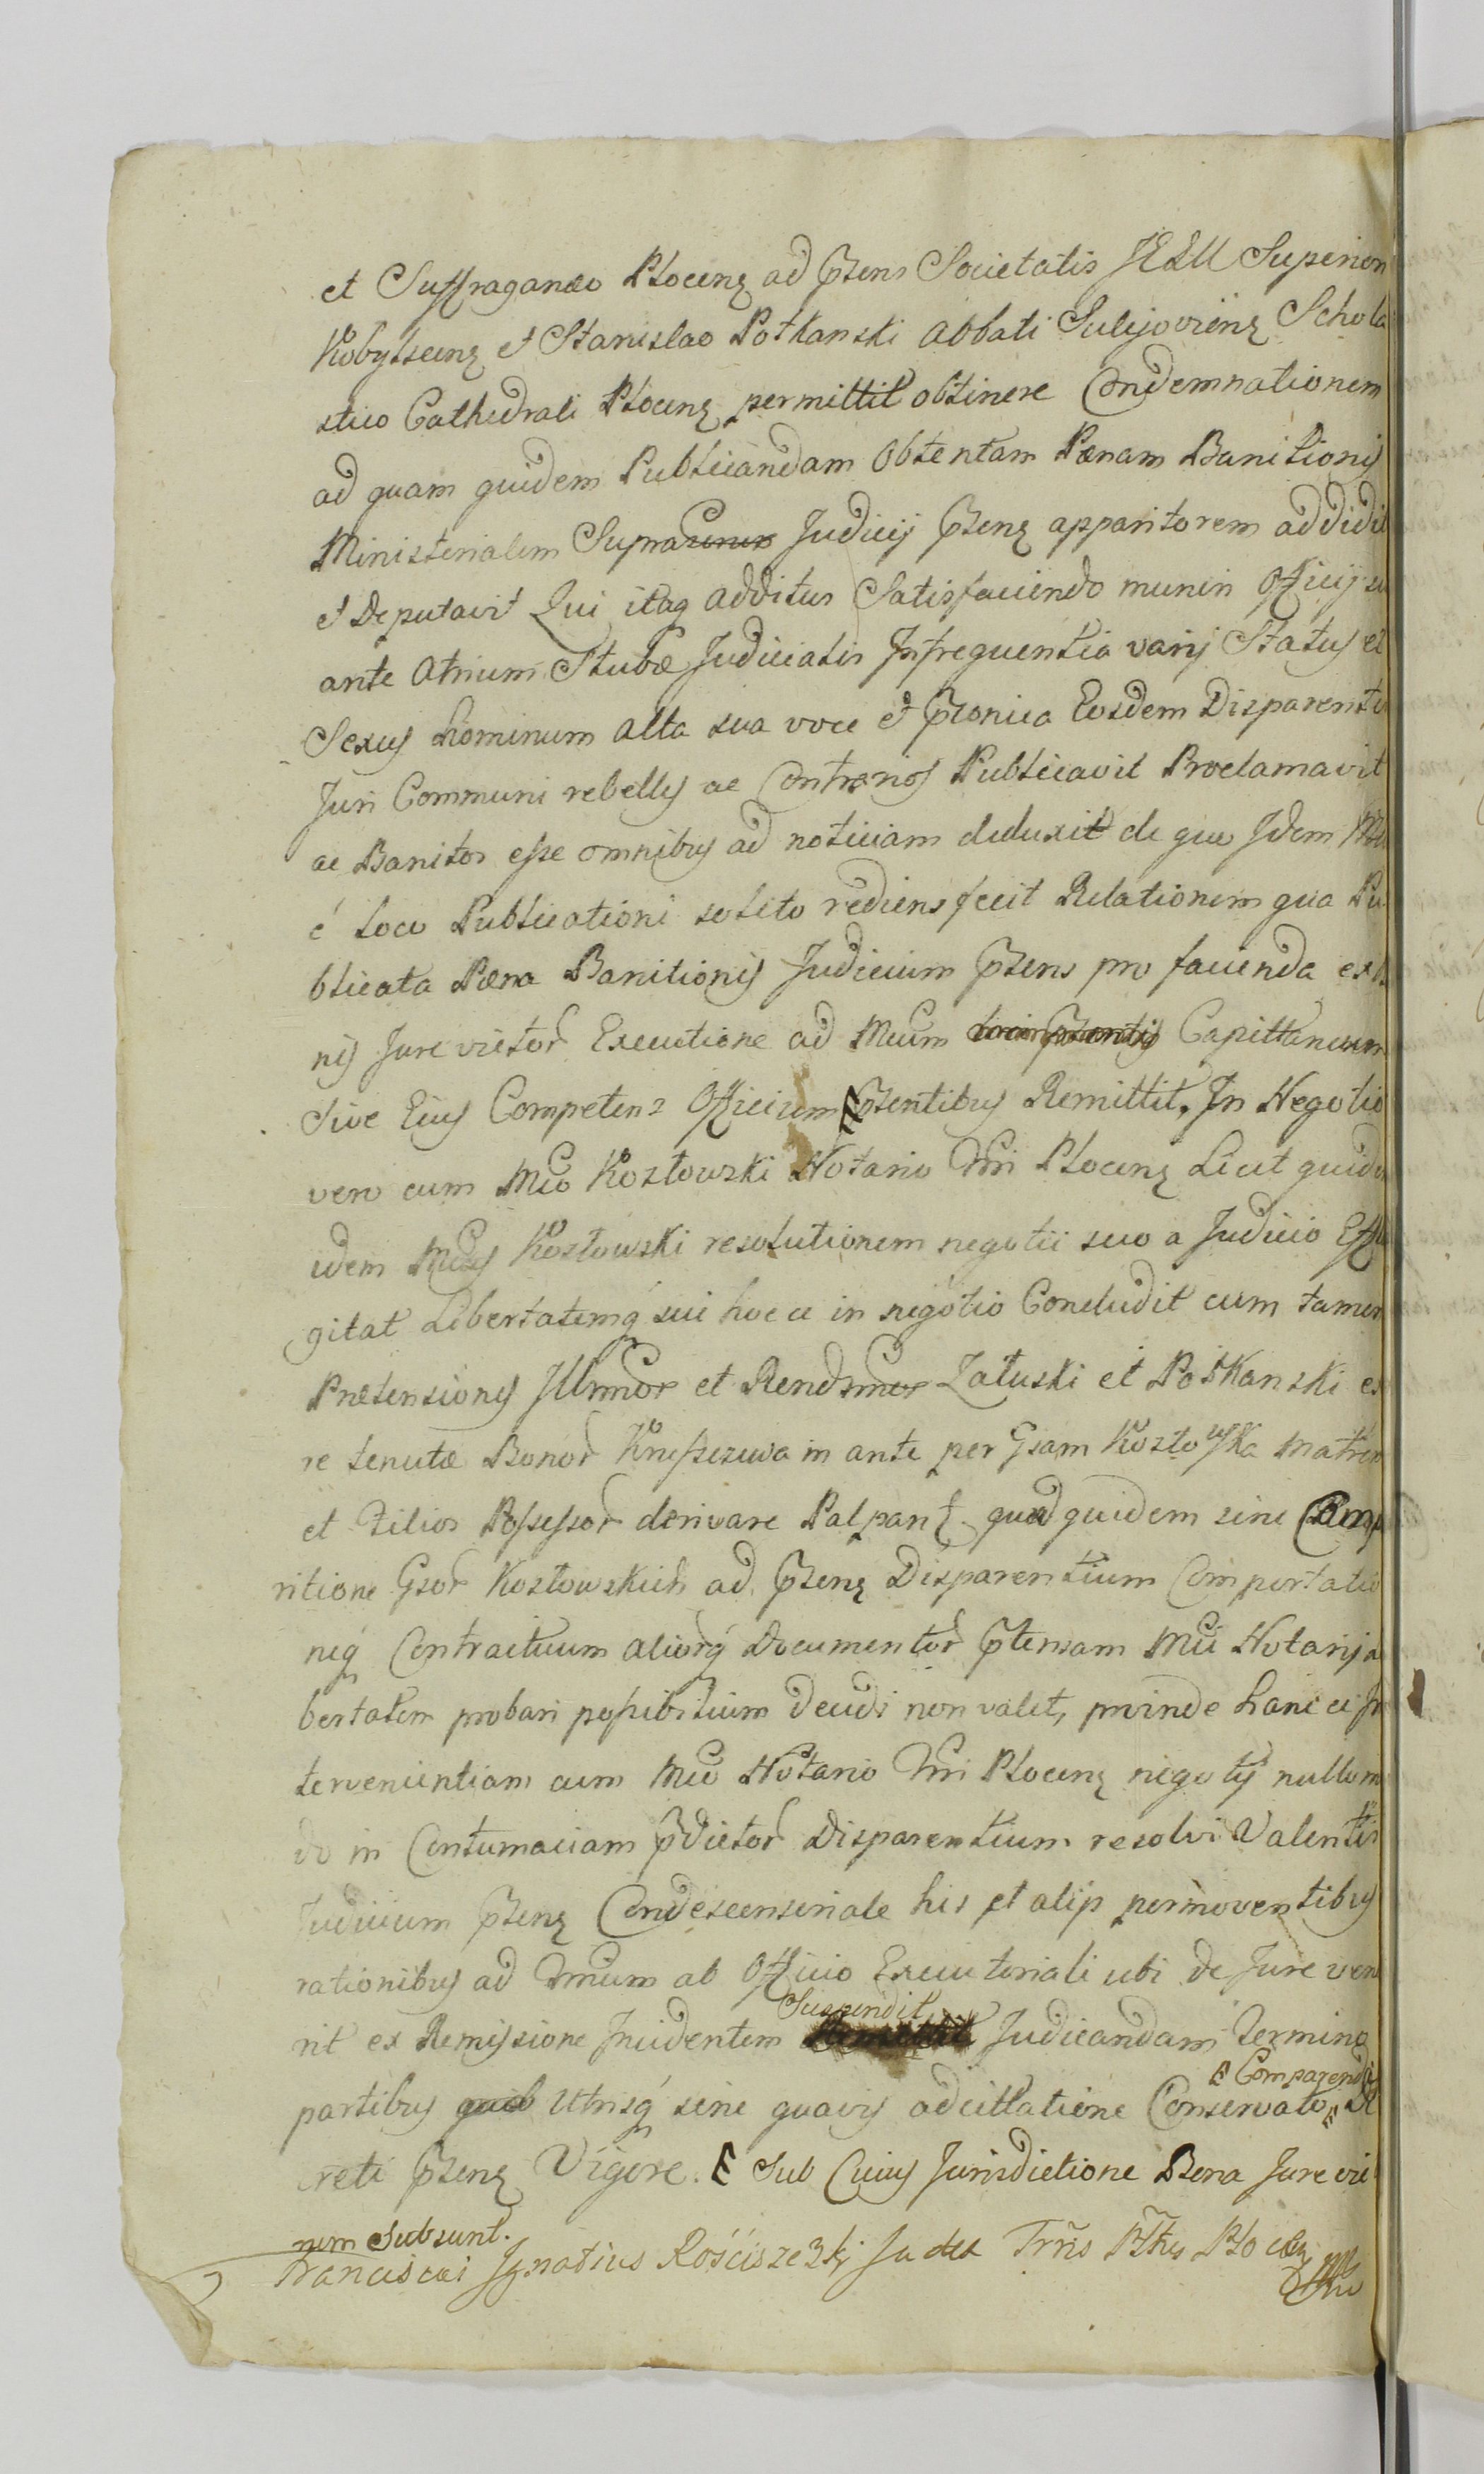 et Suffraganeo Plocen. ad pszens Societatis JESU Superiori
Kobylscen. et Stanislao Potkanski Abbati Sulijovien. Schola
stico Cathedrali Plocen. permittit obtinere Condemnationem
ad quam quidem Publicandam Obtentam Pænam Banitionis
Ministerialem Supra Judicij pszen. apparitorem addidit
et Deputavit Qui itaq additus Satisfaciendo muneri Officij su
ante Atrium Stubæ Judicialis Infrequentia varij Status et
Sexus hominum alta sua voce et pszonica Eosdem Disparentes
Juri Communi rebelles ac Contrarios Publicavit Proclamavit
ac Banitos esse omnibus ad noticiam deduxit de quo Idem
é loco Publicationi solito rediens fecit Relationem qua Pu
blicata Pæna Banitionis Judicium pszens pro facienda ex
nis Jure victor Executione ad Mcum Capittaneum
Sive Eius Competens Officium pszentibus Remittit, In Negotio
vero cum Mco Kozłowski Notario Plocen. Licet quid
idem Mcus Kozłowski resolutionem negotii suo a Judicio Effla
gitat Libertatemq sui hocce in negotio Concludit cum tamen
Prætensiones Illmor et Rendsmor Załuski et Potkanski ex
re tenutæ Bonor in ante per Gsam Kozłowska Matrem
et Filios Possessor derivare Palpant quod quidem sine Comp
ritione Gsor Kozłowskich ad pszen. Disparentium Comportatio
neq Contractuum aliorq Documentor ptensam Mci Notarij
bertatem probari possibilium decidi non valet, proinde hance in
tervenientiam cum Mco Notario Plocen. negotij nullomo
do in Contumaciam pdictor Disparentium resolvi Valentis
Judicium pszen. Condescensoriale his et alijs permoventibus
rationibus ad ab Officio Executoriali ubi de Jure vene
rit ex Remissione Incidentem Suspendit Judicandam Termino
partibus Utrisq sine quavis adcittatione Conservato Comparendi De
creti pszen. Vigore. Sub Cuius Jurisdictione Bona Jure vic
nem Subsunt.
Franciscus Ignatius Rościszewski Judex Trris Plocen.